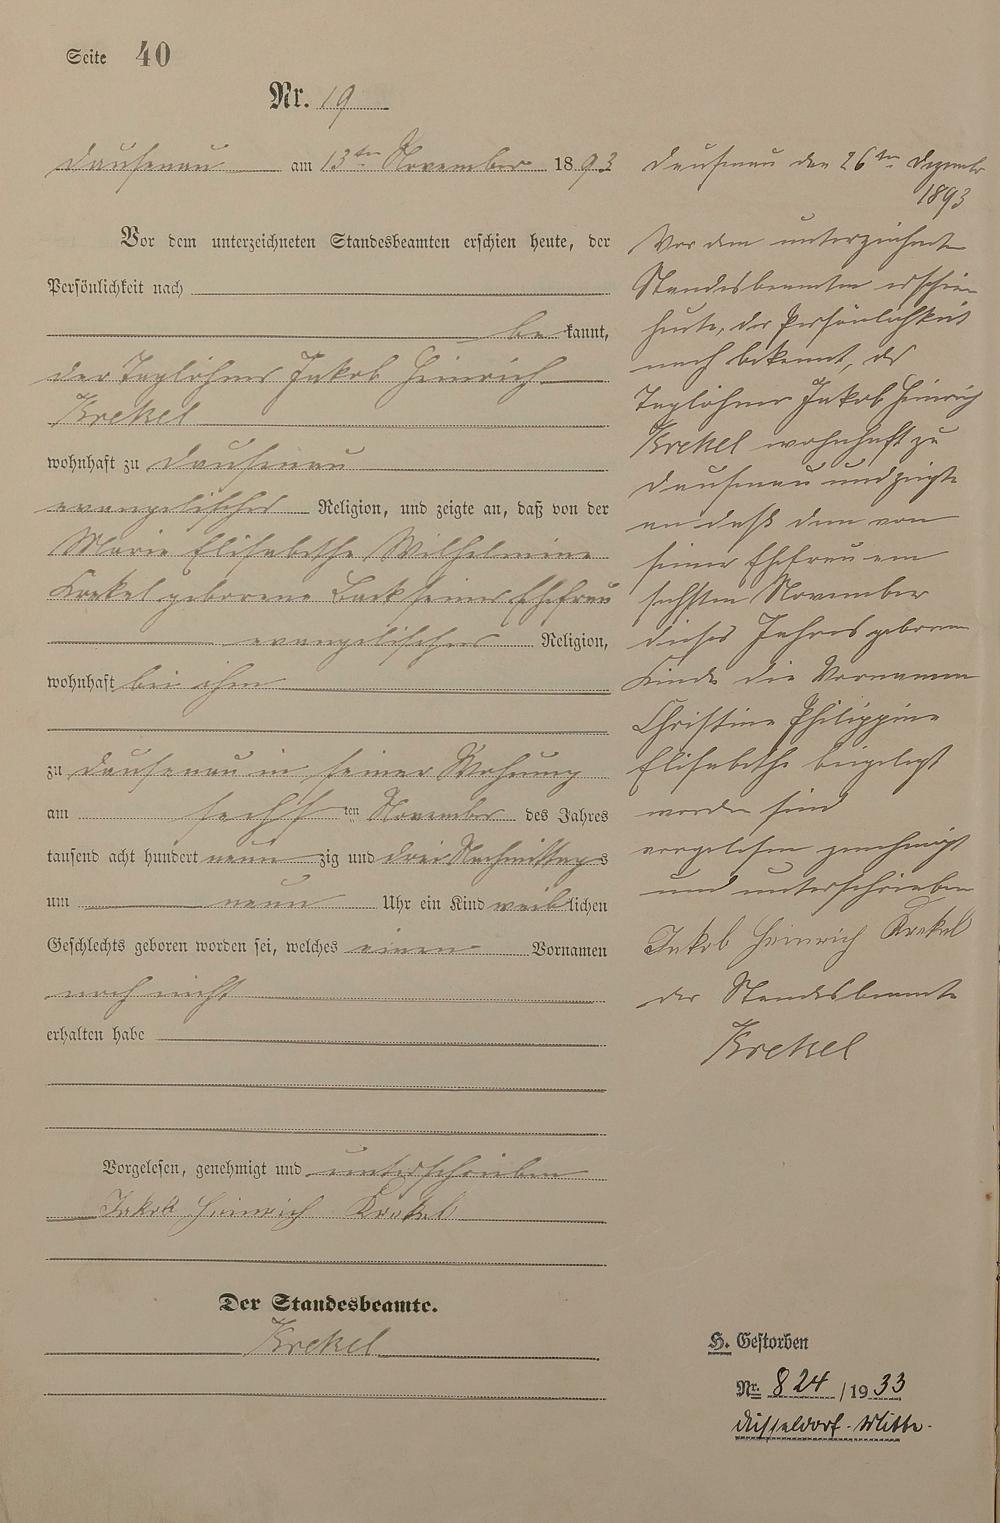 Seite 40
Nr. 19
Dausenau am 13ten November 1893
Vor dem unterzeichneten Standesbeamten erschien heute, der
Persönlichkeit nach
be kannt,
der Taglöhner Jakob Heinrich
Krekel
wohnhaft zu Dausenau
evangelischer Religion, und zeigte an, daß von der
Marie Elisabethe Wilhelmine
Krekel geborene Back seiner Ehefrau
evangelischer Religion,
wohnhaft bei ihm
zu Dausenau in seiner Wohnung
am sechsten November des Jahres
tausend acht hundert neun zig und drei Nachmittags
um neun Uhr ein Kind weiblichen
Geschlechts geboren worden sei, welches einen Vornamen
noch nicht
erhalten habe
Vorgelesen, genehmigt und unterschrieben
Jakob Heinrich Krekel
Der Standesbeamte.
Krekel
Dausenau den 26ten Dezember
1893
Vor dem unterzeichneten
Standesbeamten erschien
heute, der Persönlichkeit
nach bekannt, der
Taglöhner Jakob Heinrich
Krekel wohnhaft zu
Dausenau und zeigte
an daß dem von
seiner Ehefrau am
sechsten November
dieses Jahres geborenen
Kinde die Vornamen
Christine Philippine
Elisabethe beigelegt
worden sind
vorgelesen genehmigt
und unterschrieben
Jakob Heinrich Krekel
der Standesbeamte
Krekel
H. Gestorben
Nr. 824 / 1933
Düsseldorf-Mitte.